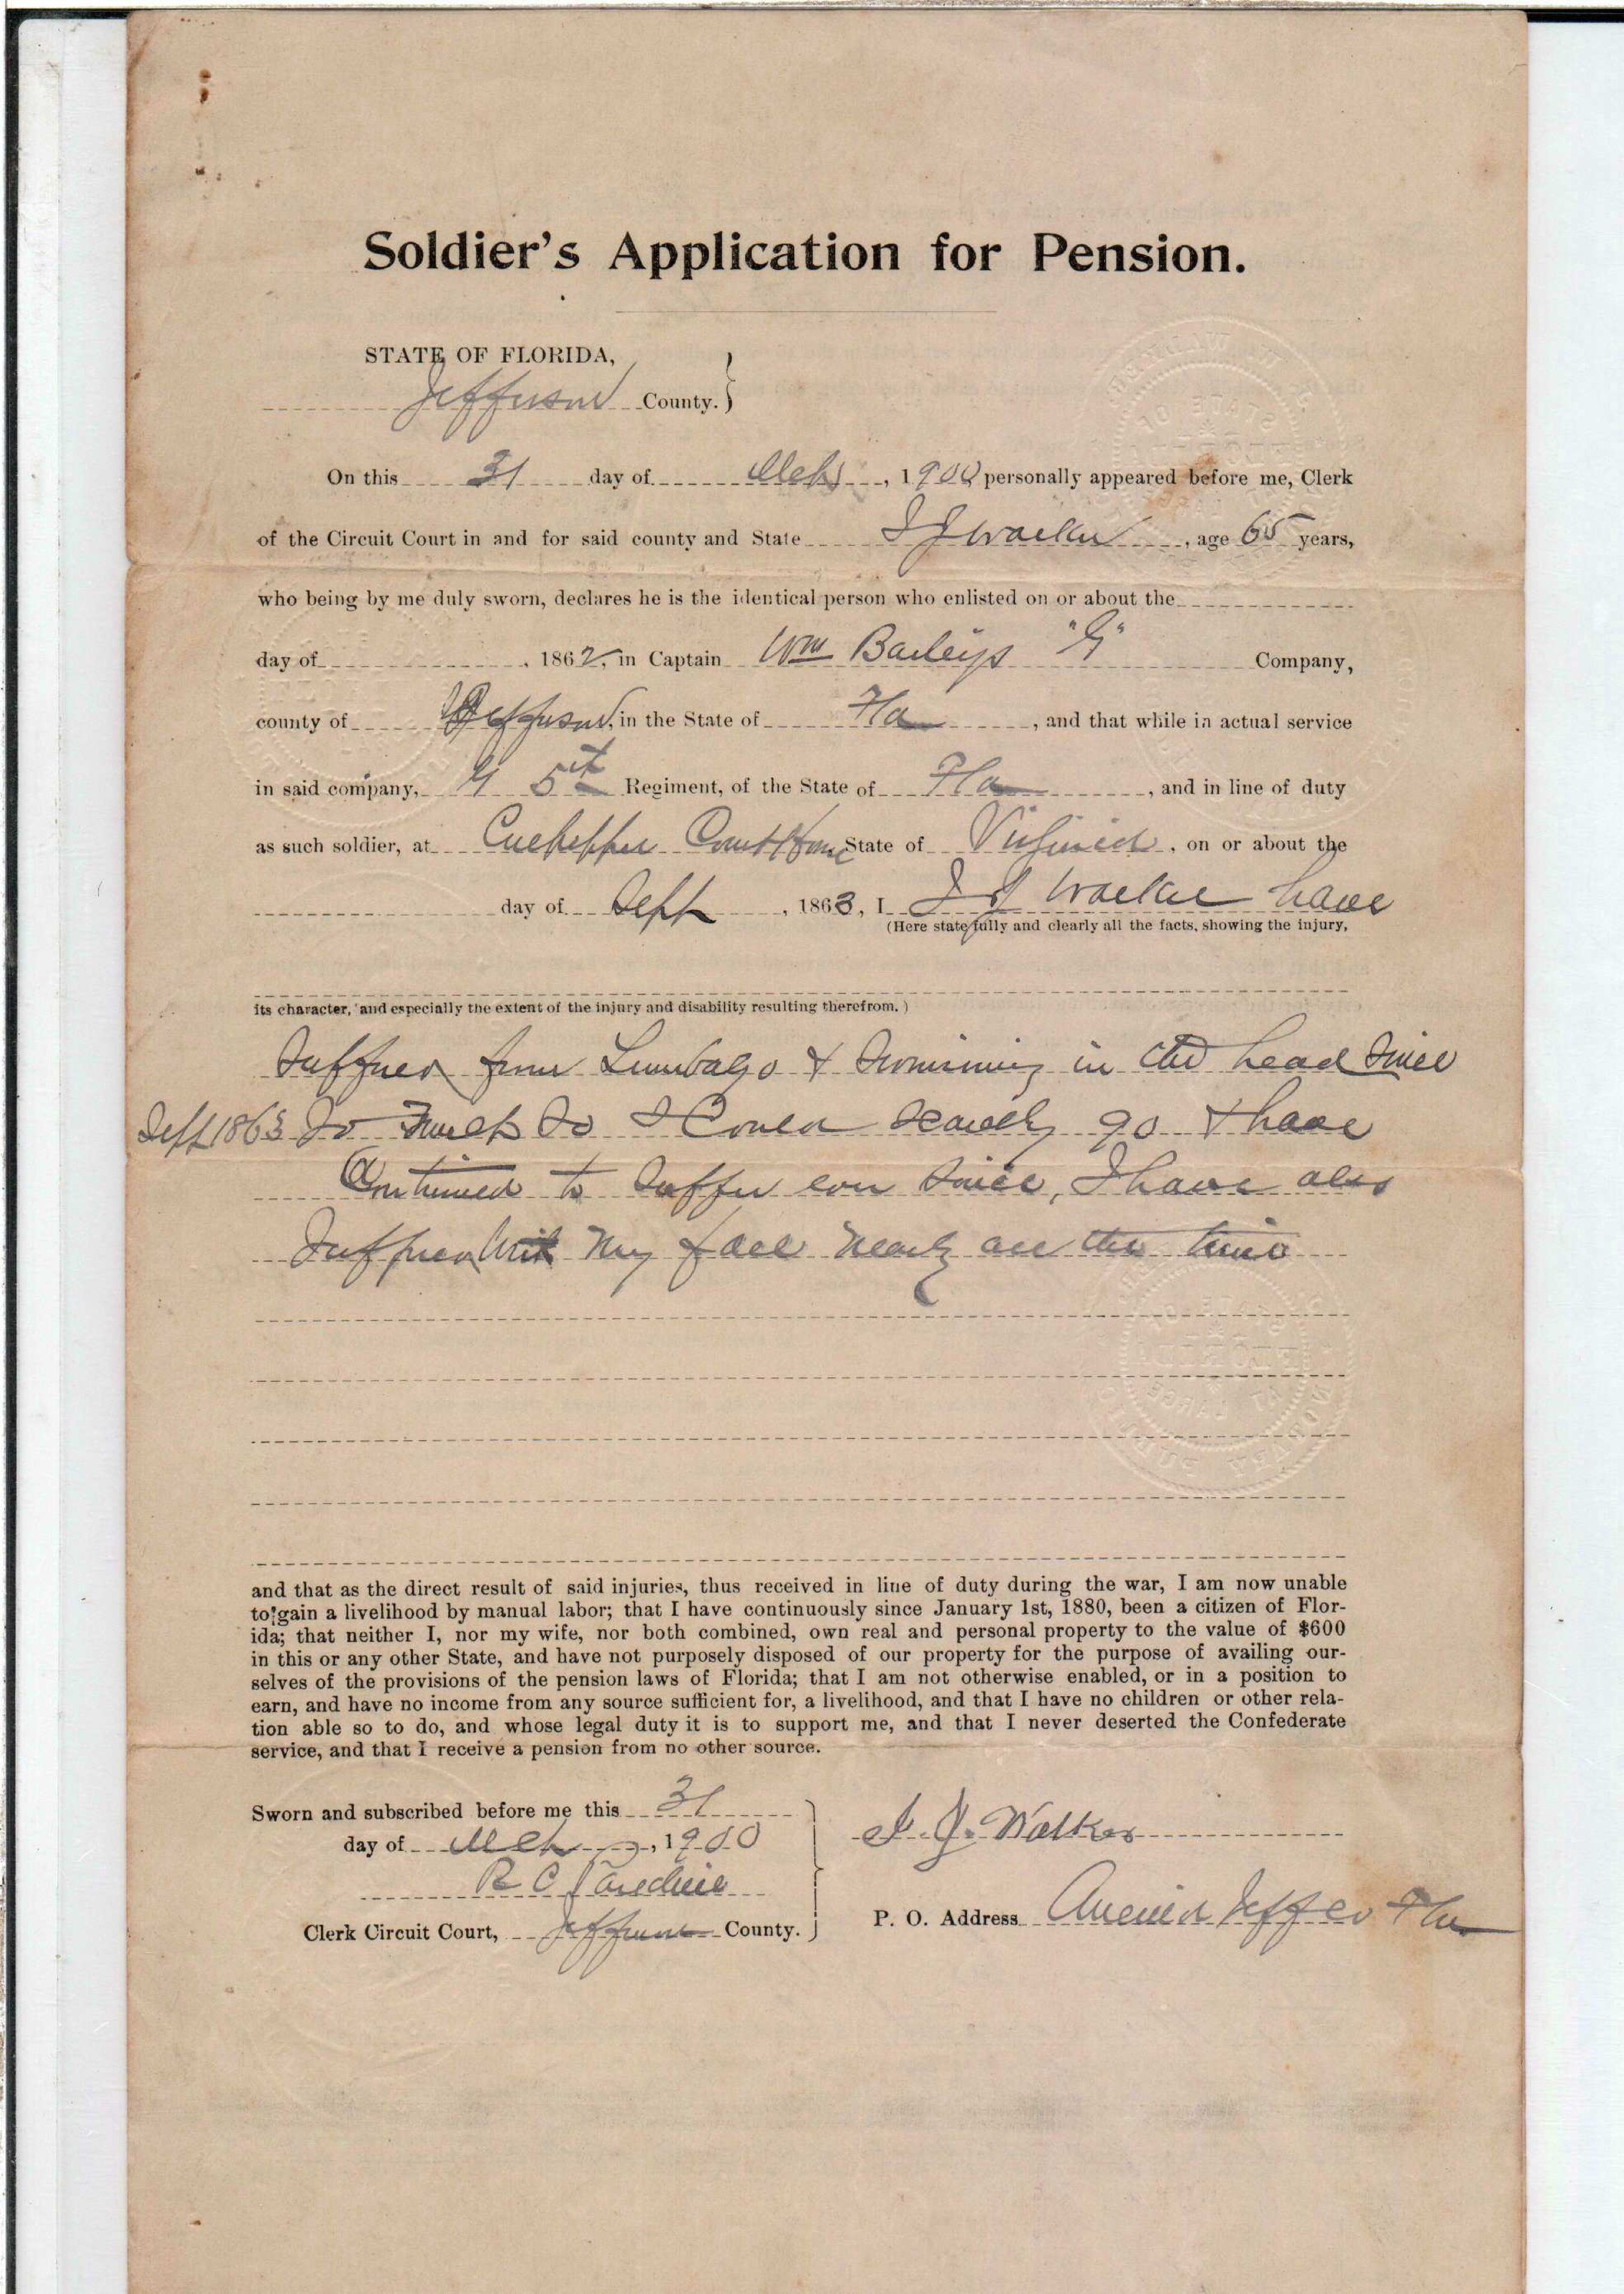 Soldier's Application for Pension.
STATE OF FLORIDA,
Jefferson County.
On this 31 day of Mch, 1900 personally appeared before me, Clerk
of the Circuit Court in and for said county and State J Walker, age 65 years,
who being by me duly sworn, declares he is the identical person who enlisted on or about the
day of , 1862, in Captain Wm Baileys "G" Company,
county of Jefferson, in the State of Fla, and that while in actual service
in said company, G 5th Regiment, of the State of Fla, and in line of duty
as such soldier, at Culpepper Court House State of Virginia, on or about the
day of Sept, 1863, I J Walker have
(Here state fully and clearly all the facts, showing the injury,
its character, and especially the extent of the injury and disability resulting therefrom.)
Suffered from Lumbago & Swimming in the head Since
Sept 1863 So Much So I Could Scarcely go & have
Continued to Suffer ever Since, I have also
Suffered With My face Nearly all the time
and that as the direct result of said injuries, thus received in line of duty during the war, I am now unable
to gain a livelihood by manual labor; that I have continuously since January 1st, 1880, been a citizen of Flor-
ida; that neither I, nor my wife, nor both combined, own real and personal property to the value of $600
in this or any other State, and have not purposely disposed of our property for the purpose of availing our-
selves of the provisions of the pension laws of Florida; that I am not otherwise enabled, or in a position to
earn, and have no income from any source sufficient for, a livelihood, and that I have no children or other rela-
tion able so to do, and whose legal duty it is to support me, and that I never deserted the Confederate
service, and that I receive a pension from no other source.
Sworn and subscribed before me this 31
day of Mch, 1900
R C
Clerk Circuit Court, Jefferson County.
J. Walker
P. O. Address Aucilla Jeffer Fla